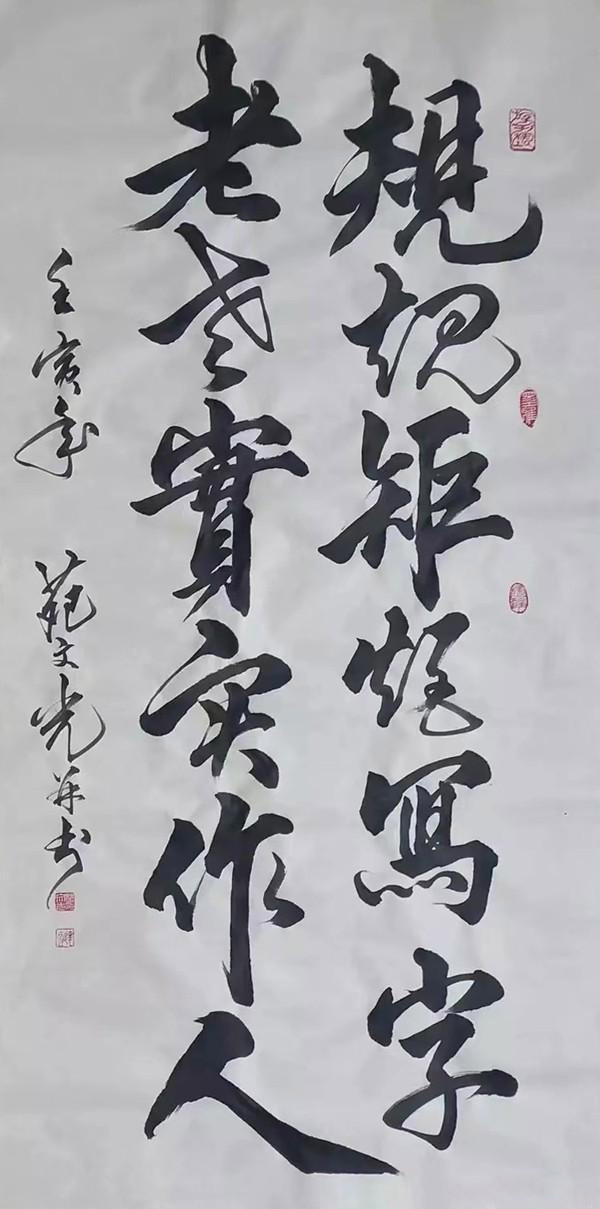 規規矩矩寫字
老老實实作人
壬寅年 范文光并书